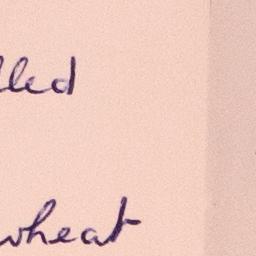 lled
wheat